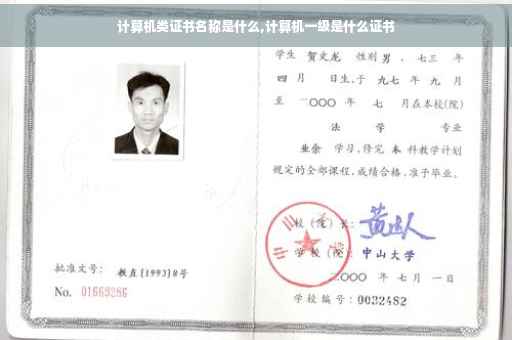 计算机类证书名称是什么,计算机一级是什么证书
学生 贺文龙 性别 男 、七三 年
四 月 日生,于 九七 年 九 月
至 二〇〇〇 年 七 月在本校(院)
法 学 专业
业余 学习,修完 本 科教学计划
规定的全部课程,成绩合格,准予毕业。
校(院)长:
学校(院): 中山大学
二〇〇〇 年 七 月 一 日
学校编号: 0032482
批准文号: 教直[1993]8号
No. 01669286